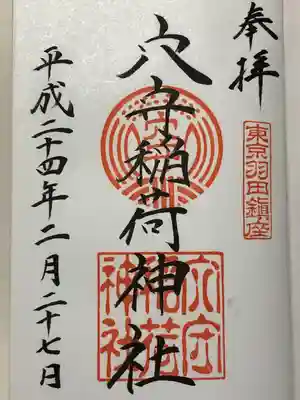 奉拝
東京羽田鎮座
穴守稲荷神社
平成二十四年二月二十七日